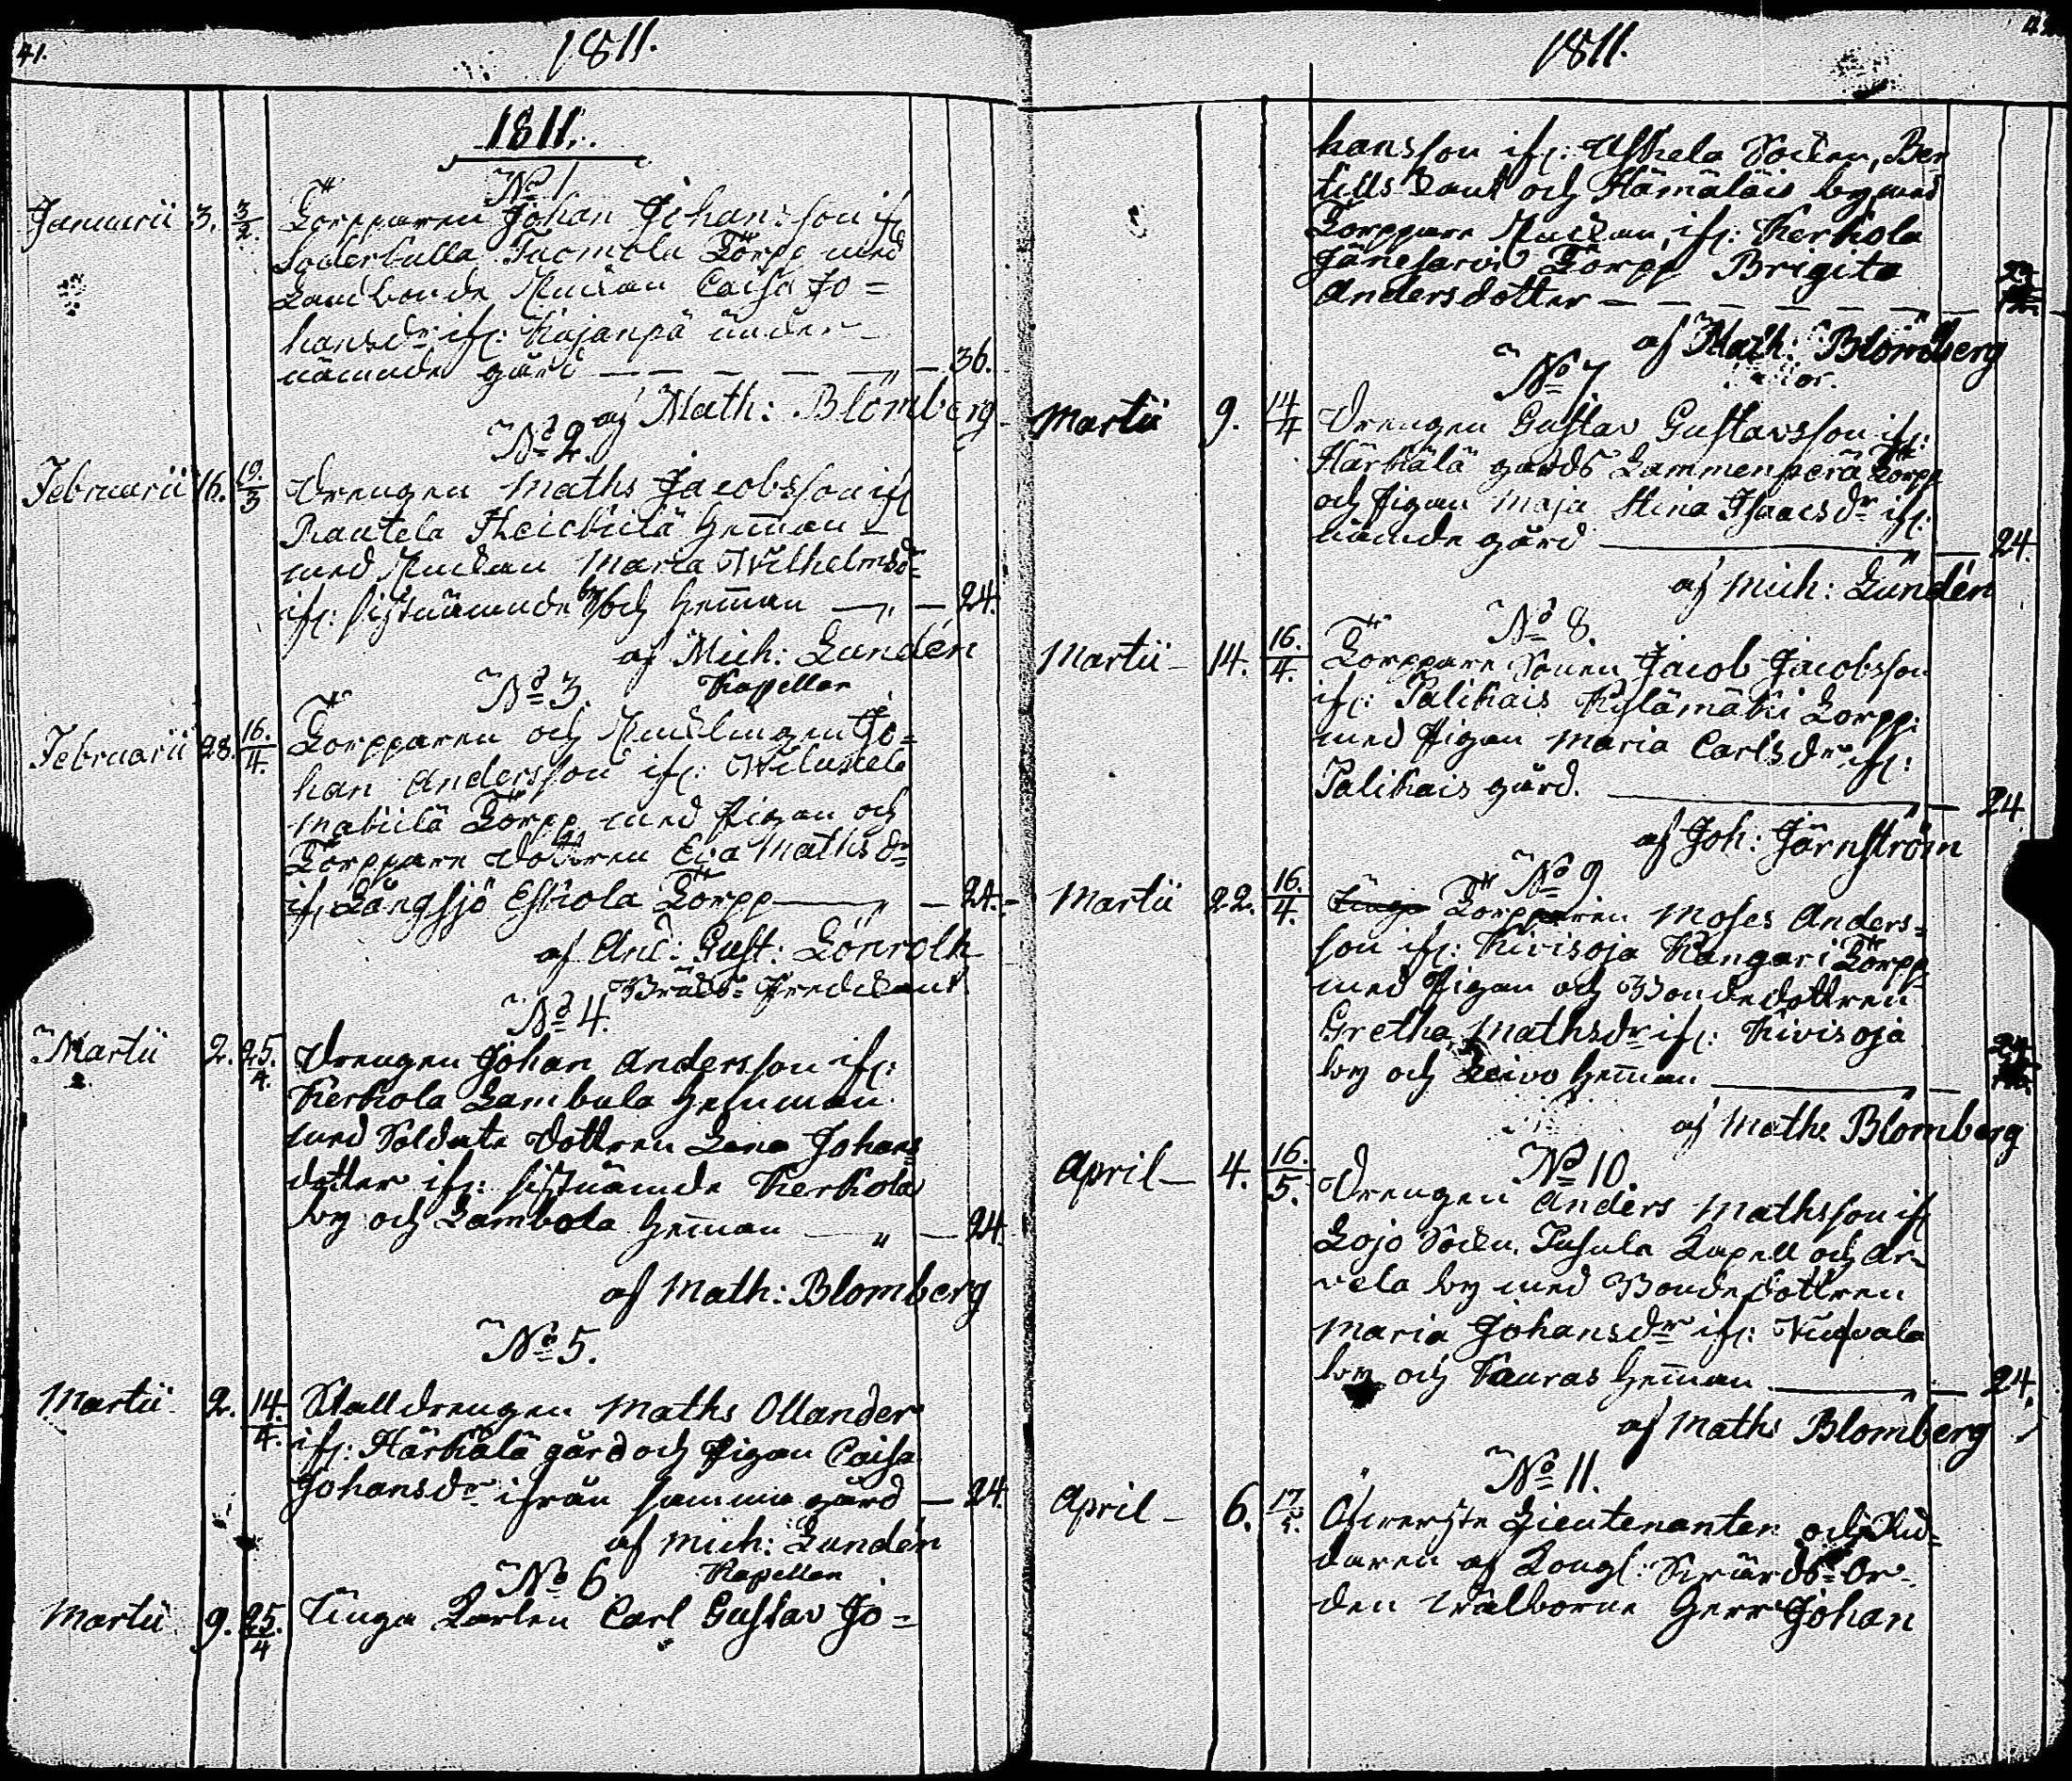 41.
1811.
1811.
No 1
Januarii 3. 3/2. Torpparen Johan Johansson ifr
Söderkulla Tuomola Torpp med
Landbonde Enckan Caisa Jo=
hansdr ifr: Kajanpä under
nämnde gård — 36.
af Math: Blomberg
No 2.
Februarii 16. 19./3 Drengen Maths Jacobsson ifr
Rautela Heickilä Hemman
med Enckan Maria Wilhelmsd
ifr: sistnämnde by och Hemman — 24.
af Mich: Lundén
Kapellan
No 3.
Februarii 28. 16./4. Torpparen och Encklingen Jo=
han Andersson ifr:
Torpp med Pigan och
Torppare Dottren Eva Mathsdr
ifr Långsjö Eskola Torpp — 24.
af And: Gust: Lönroth
Bruks=Predicant
No 4.
Martii 2. 25./4. Drengen Johan Andersson ifr:
Kerkola Lambala Hemman
med Soldate Dottren Lena Johans=
dotter ifr: sistnämde Kerkola
by och Lambola Hemman — 24.
af Math: Blomberg
No 5.
Martii 2. 14./4. Stalldrengen Maths Ollander
ifr: Härkälä gård och Pigan Caisa
Johansdr ifrån samma gård — 24.
af Mich: Lundén
Kapellan
No 6
Martii 9. 25./4 Unga Karlen Carl Gustav Jo=
1811.
hansson ifr: Uskela Socken, Ber
tills och Hämäläis by med
Torppare Enckan, ifr: Kerkola
Jänesarvi Torpp Brigita
Andersdotter — 24
af Math: Blomberg
No 7
Martii 9. 14/4 Drengen Gustav Gustavsson ifr:
Härkälä gårds Lammenperä Torpp
och Pigan Maja Stina Isaacsdr ifr:
nämde gård — 24.
af Mich: Lundén
No 8.
Martii 14. 16./4. Torppare Sonen Jacob Jacobsson
ifr: Palikais Kylämäki Torpp:
med Pigan Maria Carlsdr ifr:
Palikais gård. — 24
af Joh: Järnström
No 9
Martii 22. 16./4. Torpparen Moses Anders=
son ifr: Kivisoja Kangari Torpp
med Pigan och Bondedottren
Gretha Mathsdr ifr: Kivisoja
by och Hemman — 24
af Mathe Blomberg
No 10.
April 4. 16./5. Drengen Anders Mathsson ifr
Lojo Socken, Pusula Kapell och Ar=
vela by med Bondedottren
Maria Johansdr ifr:
by och Tauras Hemman — 24.
af Maths Blomberg
No 11.
April 6. 17/5. Öfwerste Lieutenanten och Rid=
daren af Kongl: Swärds=Or=
den Wälborne Herr Johan